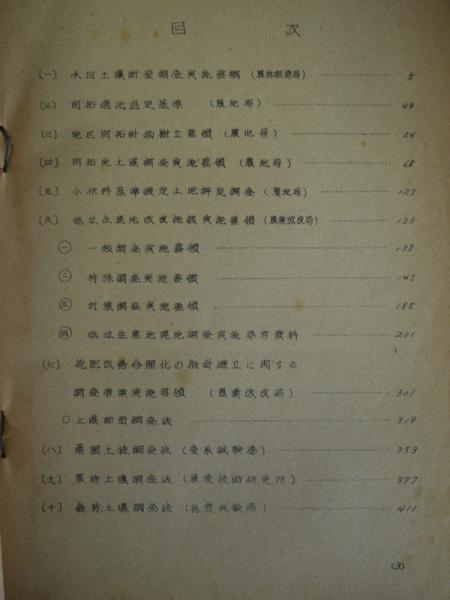 目 次
〔一〕 水田土壤断面調査実施要綱 (農林振興局) 5
〔二〕 開拓適地選定基準 (農地局) 49
〔三〕 地区開拓計画樹立要領 (農地局) 54
〔四〕 開拓地土壤調査実施要領 (農地局) 68
〔五〕 小作料基準設定土地鑑定調査 (農地局) 123
〔六〕 低位生産地改良施設実施要領 (農業改良局) 135
㊀ 一般調査実施要領 138
㊁ 特殊調査実施要領 145
㊂ 対策調査実施要領 185
㊃ 低位生産地現地調査実施参考資料 201
〔七〕 施肥改善合理化の指針確立に関する
調査事業実施要領 (農業改良局) 301
○土壤断面調査法 319
〔八〕 桑園土壤調査法 (蚕糸試験場) 353
〔九〕 農研土壤調査法 (農業技術研究所) 377
〔十〕 森林土壤調査法 (林業試験場) 411
(3)